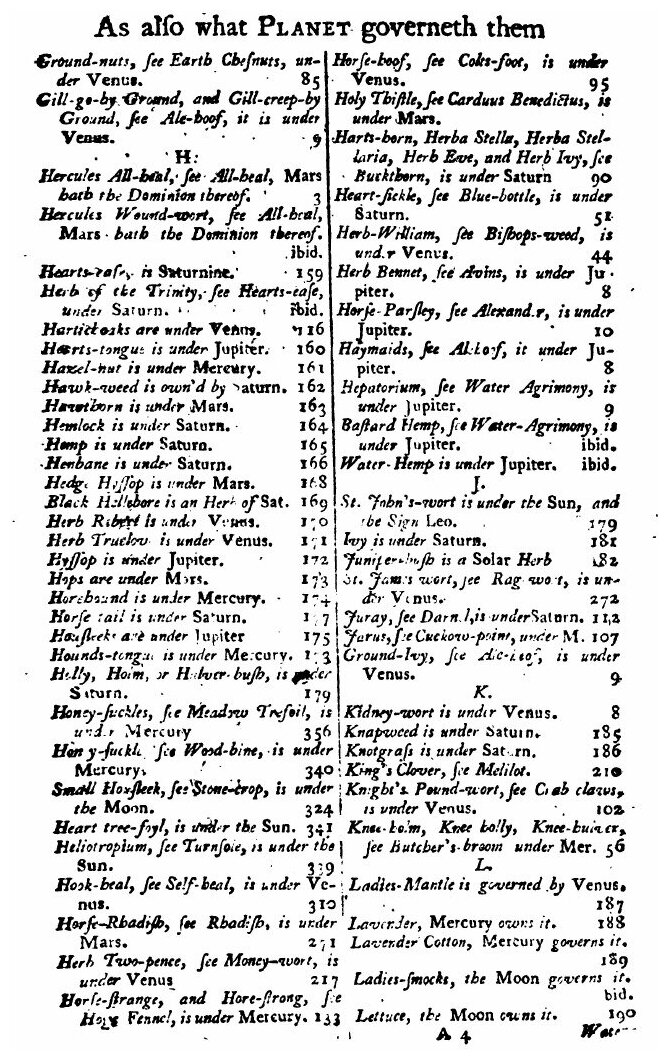 As alſo what PLANET governeth them
Ground-nuts, ſee Earth Cheſnuts, un-
der Venus. 85
Gill-go-by Ground, and Gill-creep-by
Ground, ſee Ale-hoof, it is under
Venus. 9
H.
Hercules All-heal, ſee All-heal, Mars
hath the Dominion thereof. 3
Hercules Wound-wort, ſee All-heal,
Mars hath the Dominion thereof.
ibid.
Hearts-eaſe, is Saturnine. 159
Herb of the Trinity, ſee Hearts-eaſe,
under Saturn. ibid.
Hartichoaks are under Venus. 116
Hearts-tongue is under Jupiter. 160
Hazel-nut is under Mercury. 161
Hawk-weed is own'd by Saturn. 162
Hawthorn is under Mars. 163
Hemlock is under Saturn. 164
Hemp is under Saturn. 165
Henbane is under Saturn. 166
Hedge Hyſſop is under Mars. 168
Black Hellebore is an Herb of Sat. 169
Herb Robert is under Venus. 170
Herb Truelove is under Venus. 171
Hyſſop is under Jupiter. 172
Hops are under Mars. 173
Horehound is under Mercury. 174
Horſe tail is under Saturn.
Houſleek are under Jupiter 175
Hounds-tongue is under Mercury.
Holly, Holm, or Hulver-buſh, is under
Saturn. 179
Honey-ſuckles, ſee Meadow Trefoil, is
under Mercury 356
Honey-ſuckle ſee Wood-bine, is under
Mercury. 340
Small Houſleek, ſee Stone-crop, is under
the Moon. 324
Heart tree-foyl, is under the Sun. 341
Heliotropium, ſee Turnſole, is under the
Sun. 339
Hook-heal, ſee Self-heal, is under Ve-
nus. 310
Horſe-Rhadiſh, ſee Rhadiſh, is under
Mars. 271
Herb Two-pence, ſee Money-wort, is
under Venus 217
Horſe-ſtrange, and Hore-ſtrong, ſee
Hogs Fennel, is under Mercury. 133
Horſe-hoof, ſee Colts-foot, is under
Venus. 95
Holy Thiſtle, ſee Carduus Benedictus, is
under Mars.
Harts-horn, Herba Stella, Herba Stel-
laria, Herb Eve, and Herb Ivy, ſee
Buckthorn, is under Saturn 90
Heart-ſickle, ſee Blue-bottle, is under
Saturn. 51
Herb-William, ſee Biſhops-weed, is
under Venus. 44
Herb Bennet, ſee Avins, is under Ju-
piter. 8
Horſe-Parſley, ſee Alexander, is under
Jupiter. 10
Haymaids, ſee Alehoof, it under Ju-
piter. 8
Hepatorium, ſee Water Agrimony, is
under Jupiter. 9
Baſtard Hemp, ſee Water-Agrimony, is
under Jupiter. ibid.
Water-Hemp is under Jupiter. ibid.
J.
St. John's-wort is under the Sun, and
the Sign Leo. 179
Ivy is under Saturn. 181
Juniper-buſh is a Solar Herb 182
St. James wort, ſee Rag wort, is un-
der Venus. 272
Juray, ſee Darnel, is under Saturn. 112
Jarus, ſee Cuckow-point, under M. 107
Ground-Ivy, ſee Ale-hoof, is under
Venus. 9
K.
Kidney-wort is under Venus. 8
Knapweed is under Saturn. 185
Knotgraſs is under Saturn. 186
King's Clover, ſee Melilot. 210
Knight's Pound-wort, ſee Crab claws,
is under Venus. 102
Knee-holm, Knee holly, Knee-hulver,
ſee Butcher's-broom under Mer. 56
L.
Ladies-Mantle is governed by Venus.
187
Lavender, Mercury owns it. 188
Lavender Cotton, Mercury governs it.
189
Ladies-ſmocks, the Moon governs it.
bid.
Lettuce, the Moon owns it. 190
A 4 Water